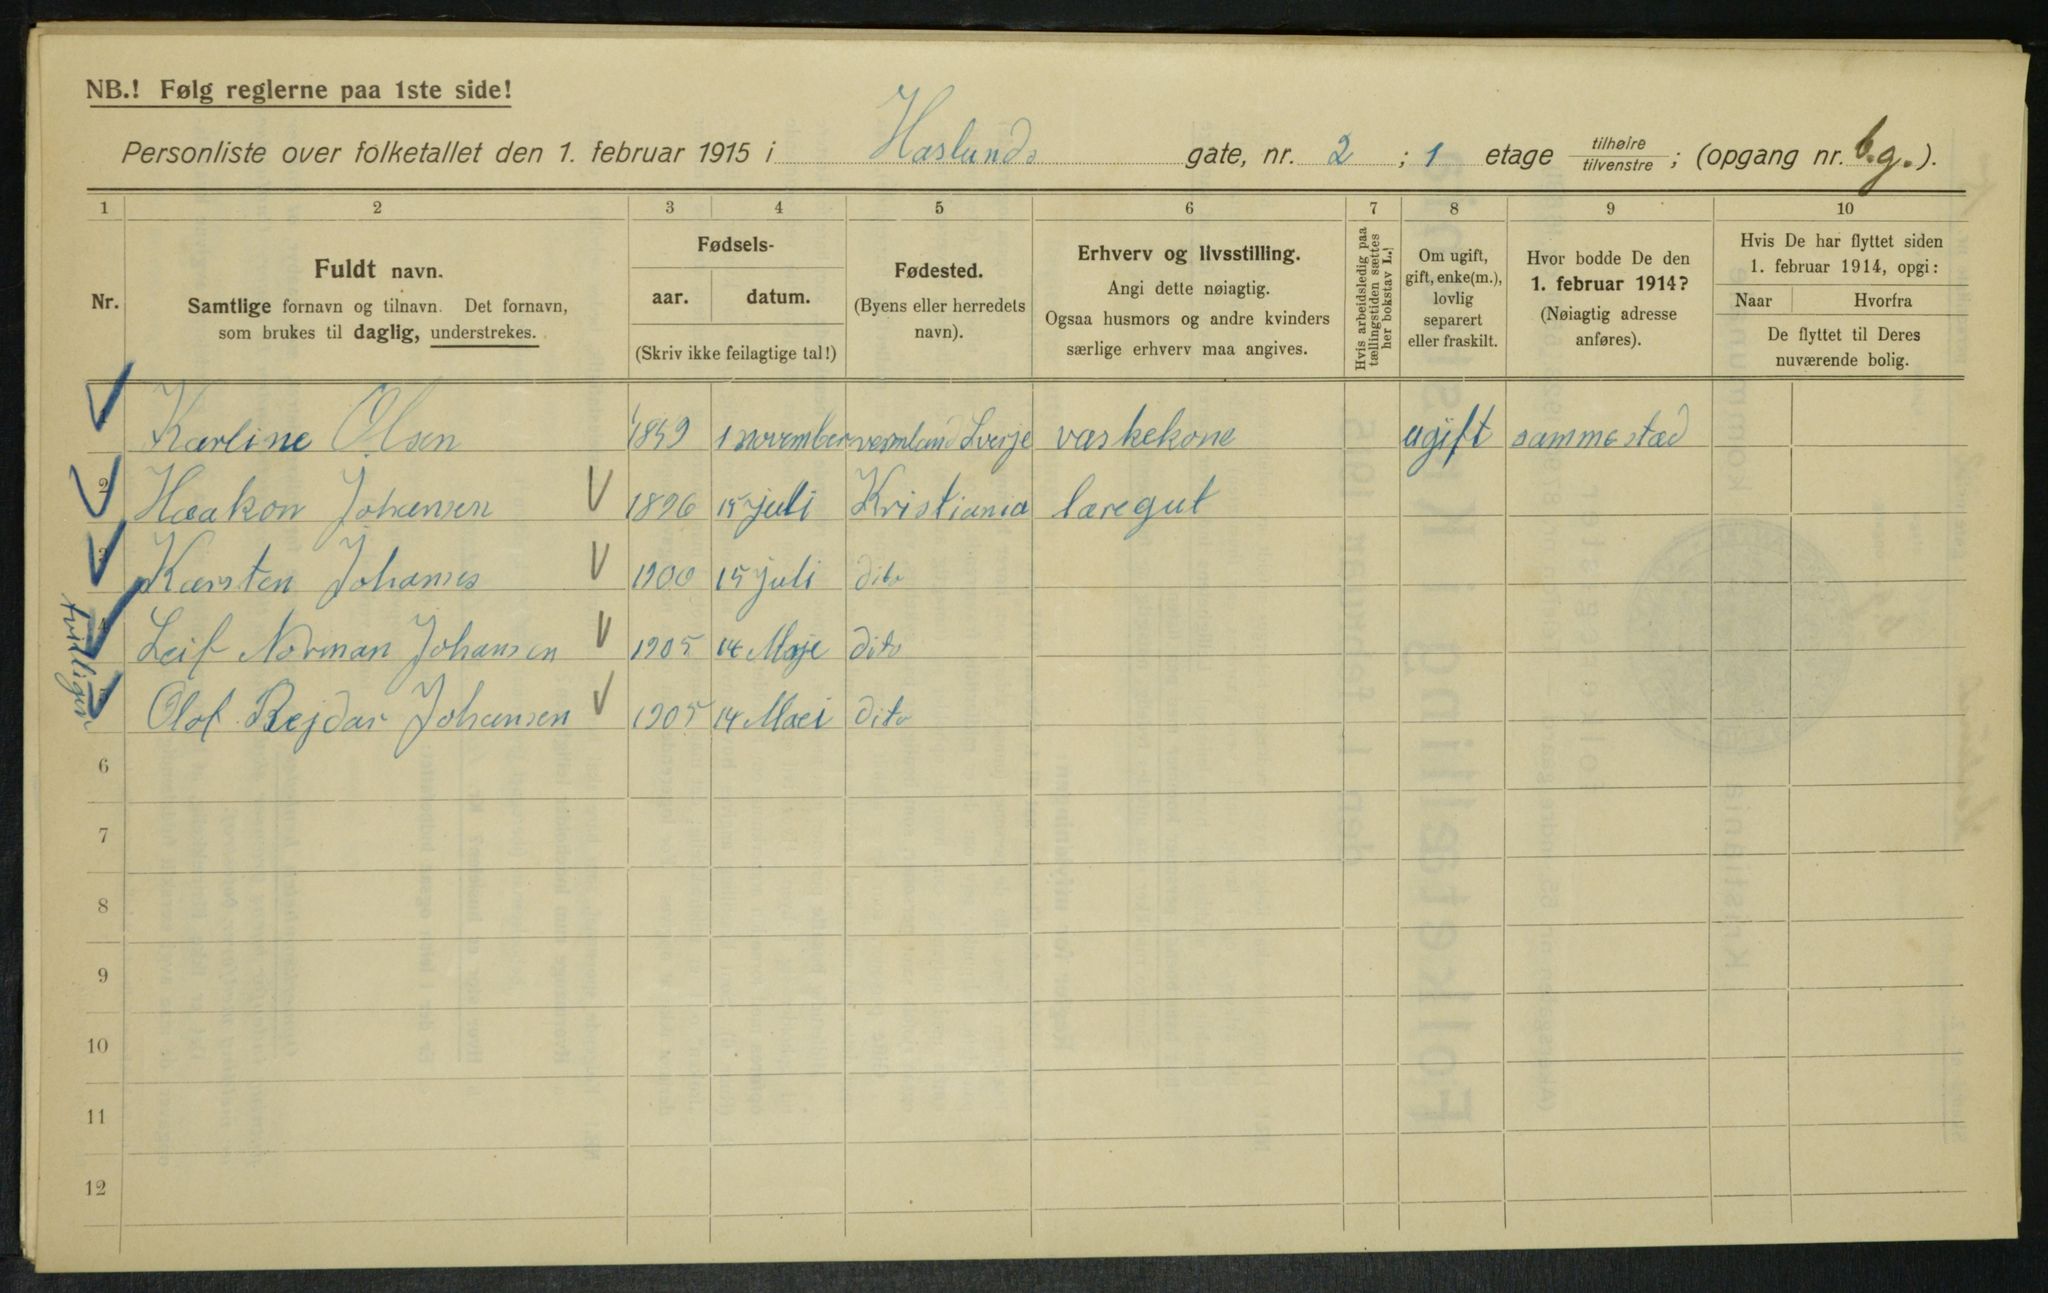 NB.! Følg reglerne paa 1ste side!
Personliste over folketallet den 1. februar 1915 i Haslunds gate, nr. 2 ; 1 etage tilhøire / tilvenstre ; (opgang nr. b.g.).
1 2 3 4 5 6 7 8 9 10
Nr.
Fuldt navn.
Samtlige fornavn og tilnavn. Det fornavn,
som brukes til daglig, understrekes.
Fødsels-
aar. datum.
(Skriv ikke feilagtige tal!)
Fødested.
(Byens eller herredets
navn).
Erhverv og livsstilling.
Angi dette nøiagtig.
Ogsaa husmors og andre kvinders
særlige erhverv maa angives.
Hvis arbeidsledig paa
tællingstiden sættes
her bokstav L.!
Om ugift,
gift, enke(m.),
lovlig
separert
eller fraskilt.
Hvor bodde De den
1. februar 1914?
(Nøiagtig adresse
anføres).
Hvis De har flyttet siden
1. februar 1914, opgi:
Naar Hvorfra
De flyttet til Deres
nuværende bolig.
Karline Olsen 1849 1 november vermland Sverje vaskekone ugift sammestæd
2 Haakon Johansen 1896 15 juli Kristiania læregut
3 Karsten Johanes 1900 15 juli dito
4 Leif Norman Johansen 1905 14 Maje dito
Olof Rejdar Johansen 1905 14 Maei dito
tvillinger
6
7
8
9
10
11
12